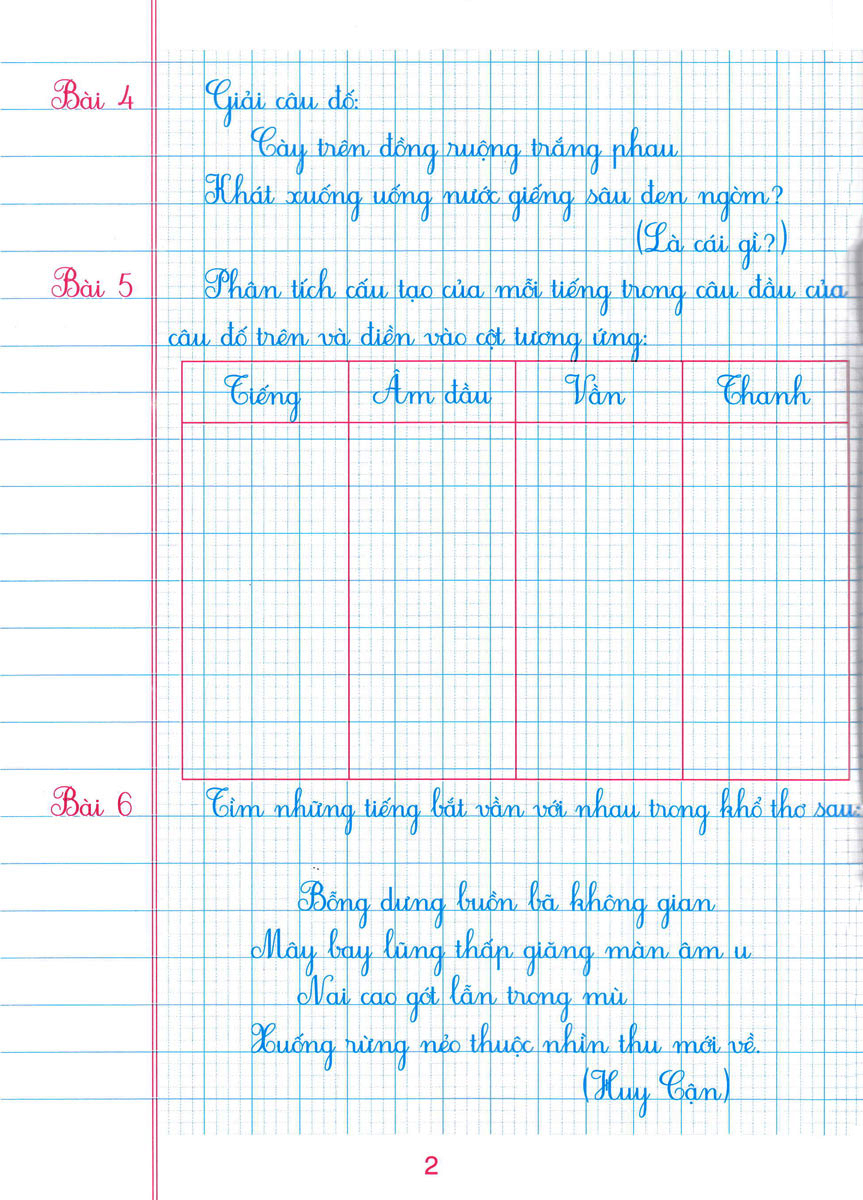 Bài 4 Giải câu đố:
Cày trên đồng ruộng trắng phau
Khát xuống uống nước giếng sâu đen ngòm?
(Là cái gì?)
Bài 5 Phân tích cấu tạo của mỗi tiếng trong câu đầu của
câu đố trên và điền vào cột tương ứng:
Tiếng Âm đầu Vần Thanh
Bài 6 Tìm những tiếng bắt vần với nhau trong khổ thơ sau:
Bỗng dưng buồn bã không gian
Mây bay lũng thấp giăng màn âm u
Nai cao gót lẫn trong mù
Xuống rừng nẻo thuộc nhìn thu mới về.
(Huy Cận)
2